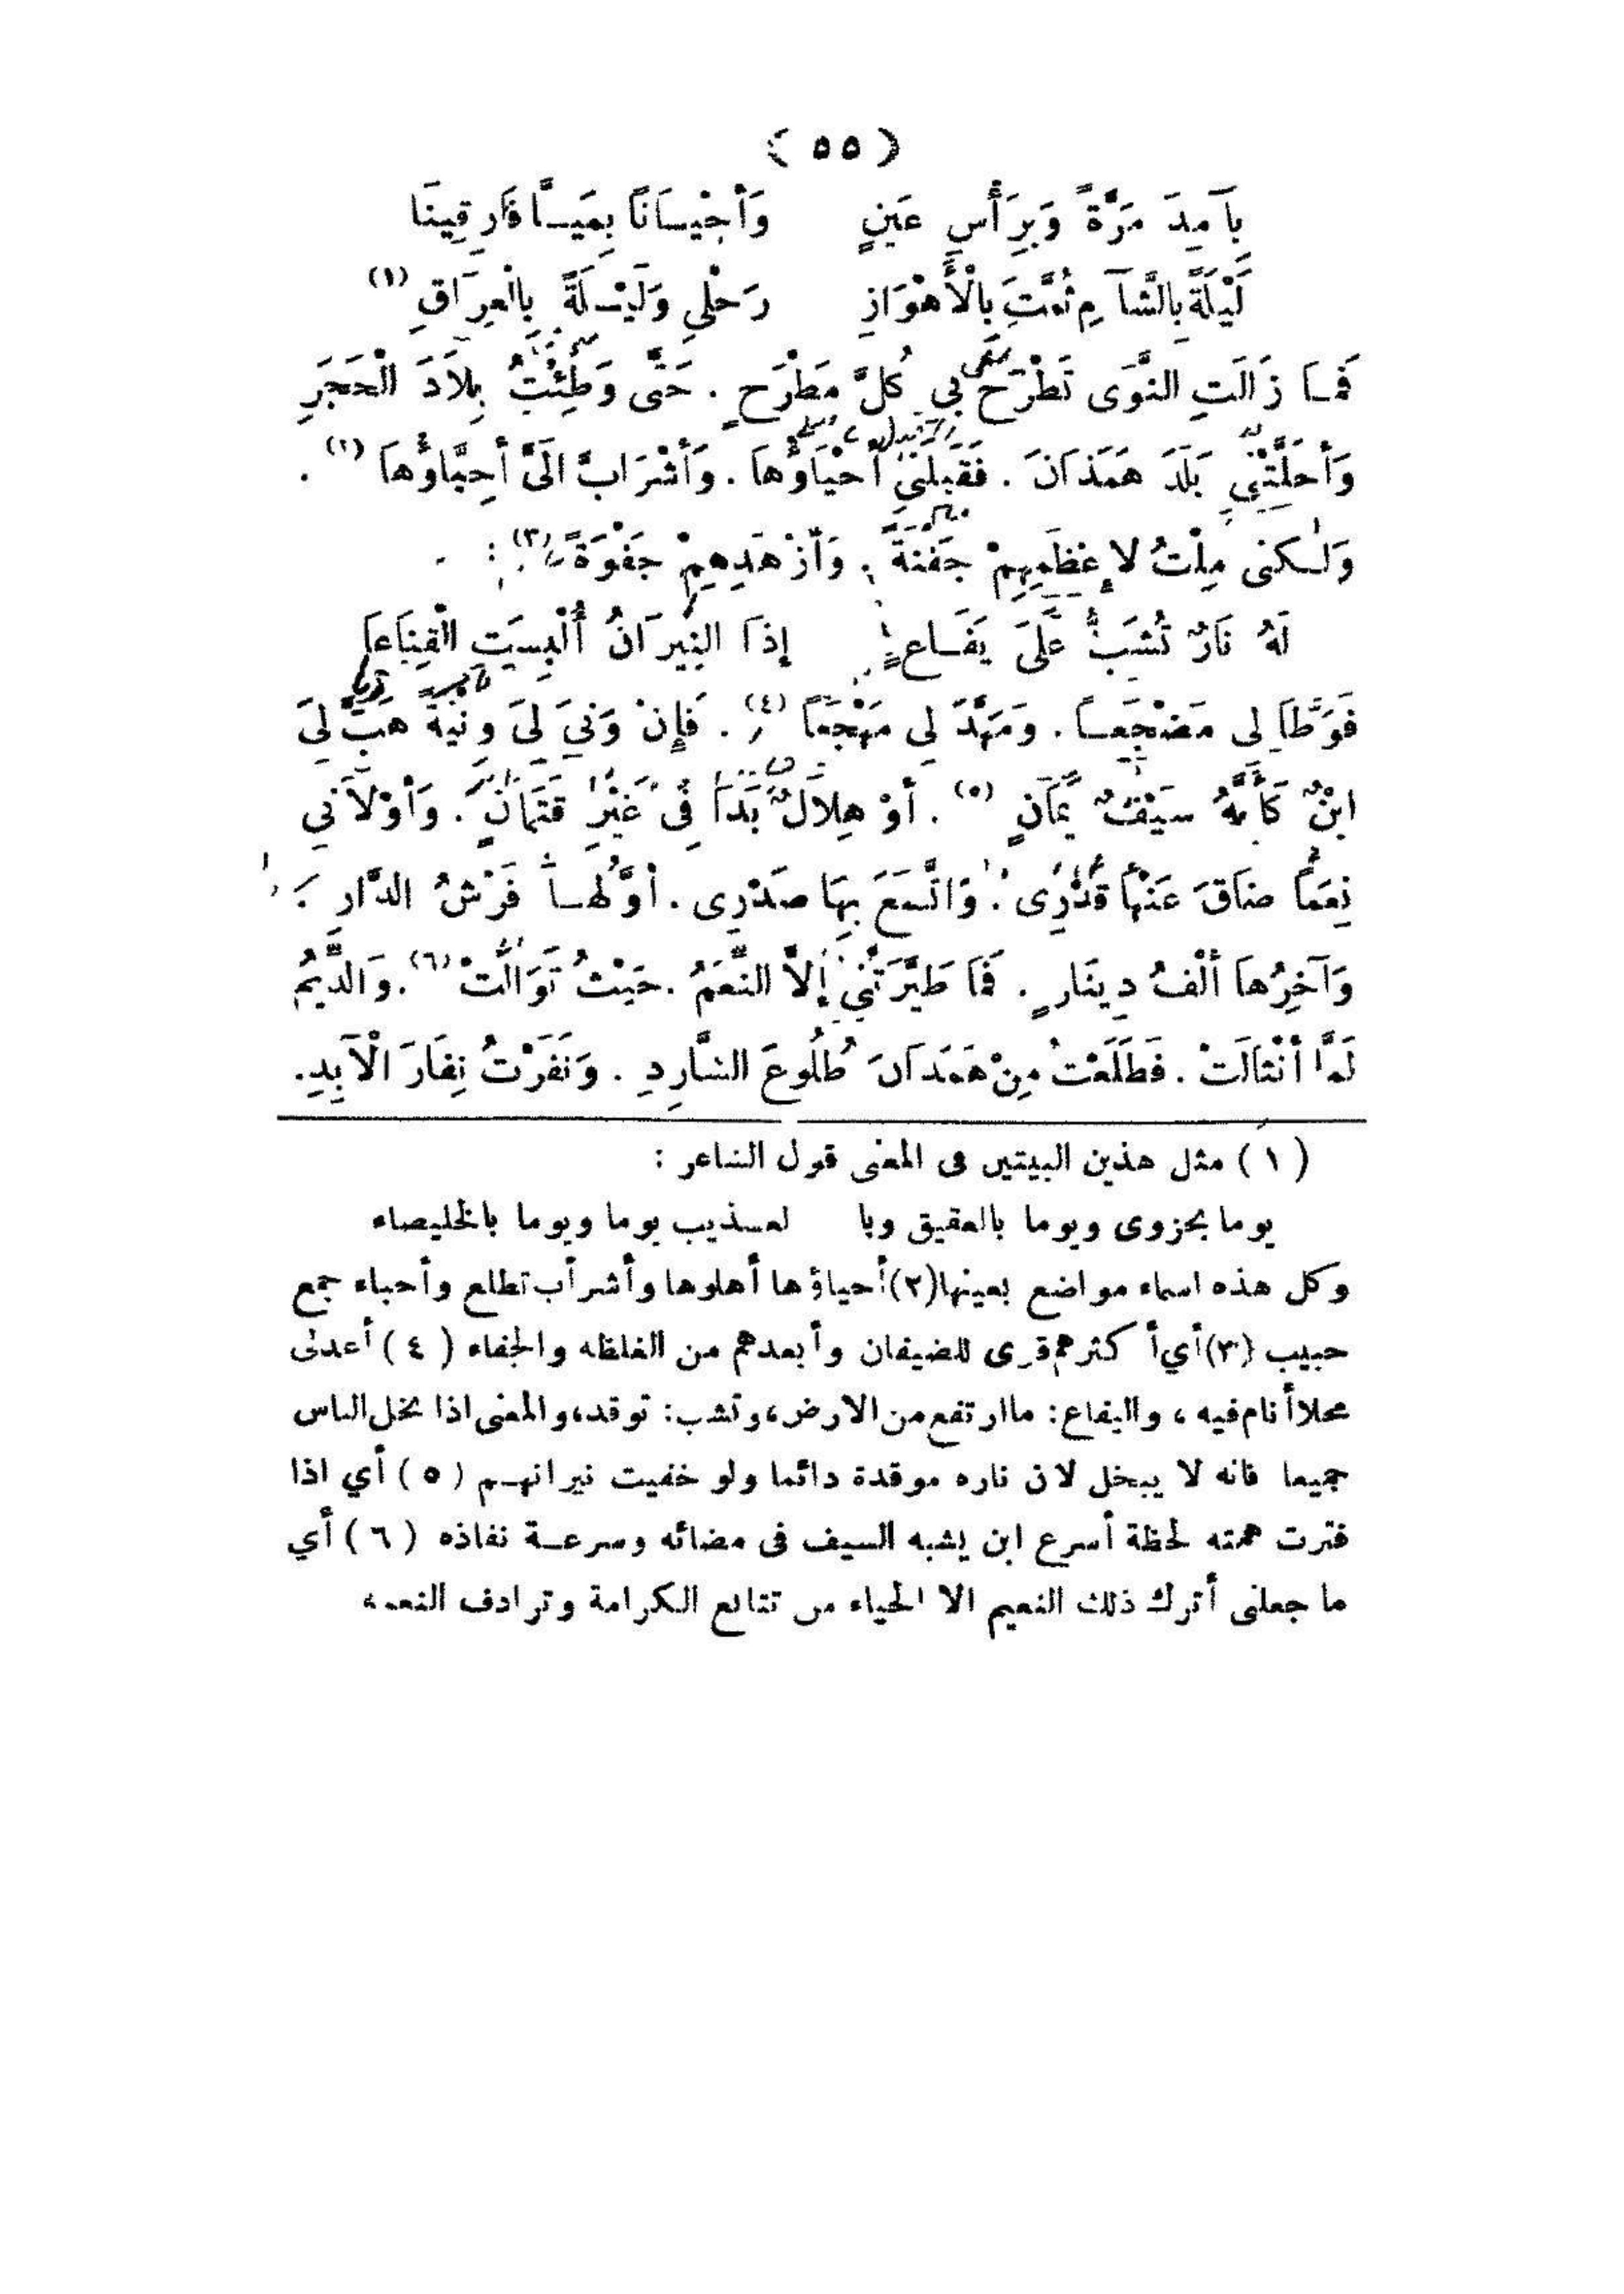 ( ٥٥ )
بِآمِدَ مَرَّةً وَبِرَأْسِ عَيْنٍ وَأَحْيَانًا بِمَيَّا فَارِقِينَا
لَيْلَةً بِالشَّآمِ ثُمَّتَ بِالْأَهْوَازِ رَحْلِي وَلَيْلَةً بِالْعِرَاقِ (١)
فَمَا زَالَتِ النَّوَى تَطْرَحُ بِي كُلَّ مَطْرَحٍ . حَتَّى وَطِئْتُ بِلَادَ الْحَجَرِ
وَأَحَلَّتْنِي بَلَدَ هَمَذَانَ . فَقَبِلَنِي أَحْيَاؤُهَا . وَأَشْرَأَبَّ الَىَّ أَحِبَّاؤُهَا (٢) .
وَلٰكِنِى مِلْتُ لِإَعْظَمِهِمْ جَفْنَةً . وَأَزْهَدِهِمْ جَفْوَةً (٣) :
لَهُ نَارٌ تُشَبُّ عَلَى يَفَاعٍ إِذَا النِّيرَانُ أُلْبِسَتِ الْقِنَاعَا
فَوَطَّأَ لِى مَضْجَعًا . وَمَهَّدَ لِى مَهْجَعًا (٤) . فَإِنْ وَنِيَ لِىَ وَنْيَةً هَبَّ لِىَ
ابْنٌ كَأَنَّهُ سَيْفٌ يَمَانٍ (٥) . أَوْ هِلَالٌ بَدَا فِى غَيْرِ قَتَمَانٍ . وَأَوْلَانِي
نِعَمًا ضَاقَ عَنْهَا قَدْرِى . وَاتَّسَعَ بِهَا صَدْرِى . أَوَّلُهَا فَرْشُ الدَّارِ .
وَآخِرُهَا أَلْفُ دِينَارٍ . فَمَا طَيَّرَتْنِي إِلَّا النِّعَمُ . حَيْثُ تَوَالَتْ (٦) . وَالدِّيَمُ
لَمَّا أَنْثَالَتْ . فَطَلَعْتُ مِنْ هَمَذَانَ طُلُوعَ الشَّارِدِ . وَنَفَرْتُ نِفَارَ الْآبِدِ.
( ١ ) مثل هذين البيتين فى المعنى قول الشاعر :
يوما بحزوى ويوما بالعقيق وبا لعذيب يوما ويوما بالخليصاء
وكل هذه اسماء مواضع بعينها(٢)أحياؤها أهلوها وأشرأب تطلع وأحباء جمع
حبيب (٣)أي أكثرهم قرى للضيفان وأبعدهم من الغلظه والجفاء ( ٤ ) أعدلى
محلا أنام فيه ، واليفاع: ما ارتفع من الارض، وتشب: توقد، والمعنى اذا بخل الناس
جميعا فانه لا يبخل لان ناره موقدة دائما ولو خفيت نيرانهم ( ٥ ) أي اذا
فترت همته لحظة أسرع ابن يشبه السيف فى مضائه وسرعة نفاذه ( ٦ ) أي
ما جعلنى أترك ذلك النعيم الا الحياء من تتابع الكرامة وترادف النعمه